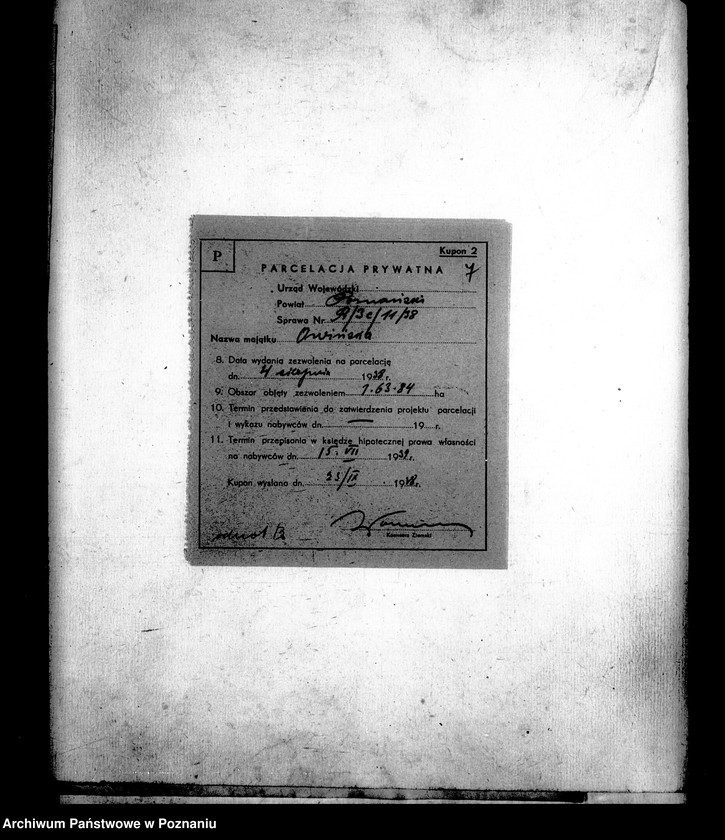 P
Kupon 2
PARCELACJA PRYWATNA 7
Urząd Wojewódzki
Powiat Poznański
Sprawa Nr. /3c/11/38
Nazwa majątku Owińska
8. Data wydania zezwolenia na parcelację
dn. 4 sierpnia 1938 r.
9. Obszar objęty zezwoleniem 1.63.84 ha
10. Termin przedstawienia do zatwierdzenia projektu parcelacji
i wykazu nabywców dn. — 19 — r.
11. Termin przepisania w księdze hipotecznej prawa własności
na nabywców dn. 15. VII 1939 r.
Kupon wysłano dn. 23/IX 1938 r.
Komisarz Ziemski
Archiwum Państwowe w Poznaniu